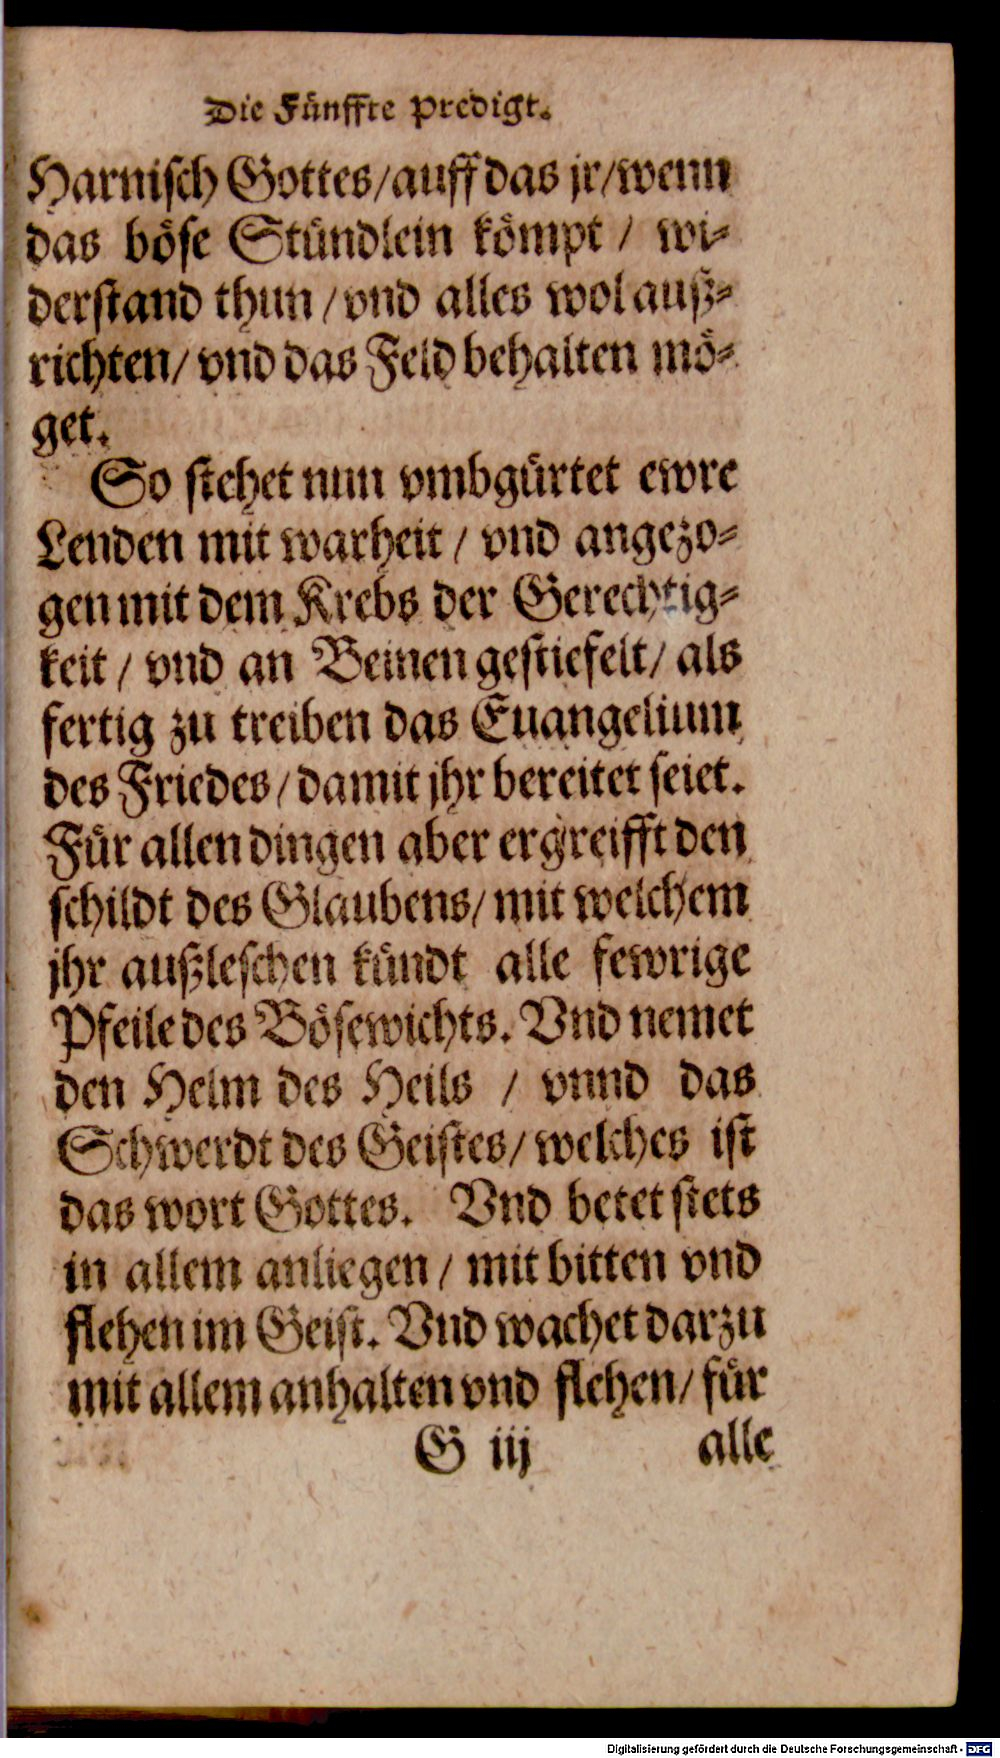 Die Fünffte Predigt.
Harnisch Gottes/auff das jr/wenn
das böse Stündlein kömpt / wi-
derstand thun / vnd alles wol auß-
richten/ vnd das Feld behalten mö-
get.
So stehet nun vmbgürtet ewre
Lenden mit warheit / vnd angezo-
gen mit dem Krebs der Gerechtig-
keit / vnd an Beinen gestiefelt/ als
fertig zu treiben das Euangelium
des Friedes/damit jhr bereitet seiet.
Für allen dingen aber ergreifft den
schildt des Glaubens/ mit welchem
jhr außleschen kündt alle fewrige
Pfeile des Bösewichts. Vnd nemet
den Helm des Heils / vnnd das
Schwerdt des Geistes/ welches ist
das wort Gottes. Vnd betet stets
in allem anliegen / mit bitten vnd
flehen im Geist. Vnd wachet darzu
mit allem anhalten vnd flehen/ für
G iij alle
Digitalisierung gefördert durch die Deutsche Forschungsgemeinschaft - DFG